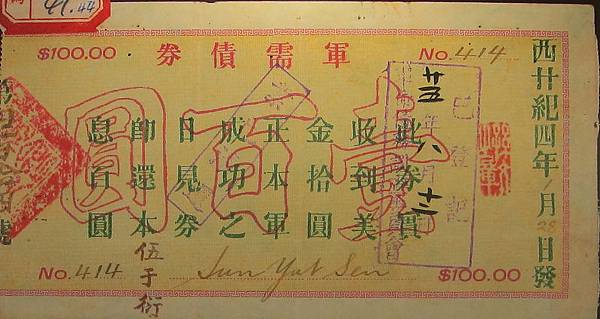 41.44
$100.00
軍需債券
No. 414
西廿紀四年1月28日發
此券實
收到美
金拾圓
正本軍
成功之
日見券
即還本
息百圓
壹百圓
已登記
廿五年八月十二
No. 414
Sun Yat Sen
$100.00
伍于衍